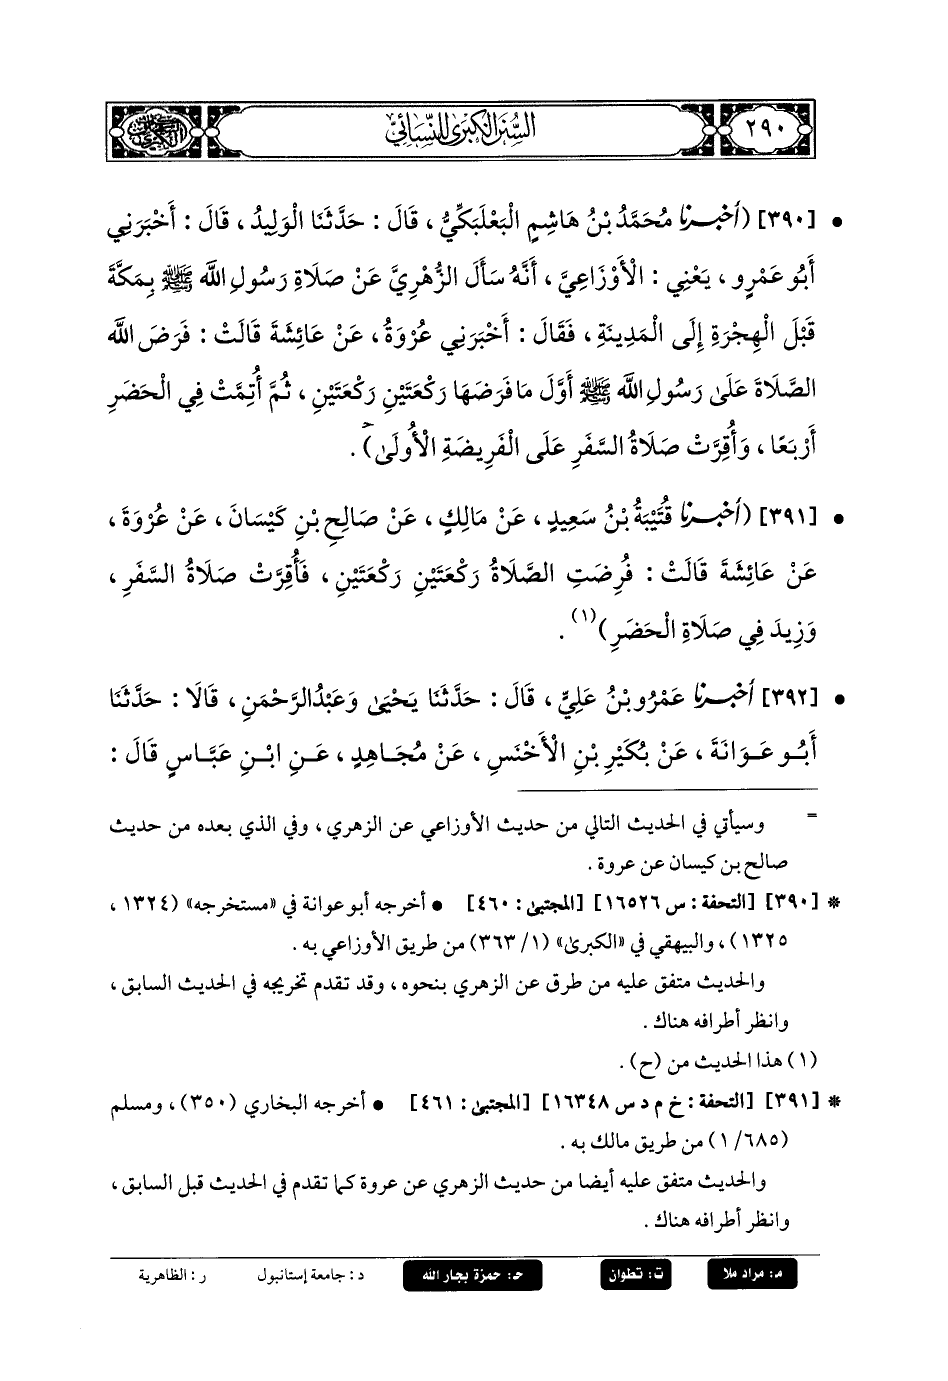 ٢٩٠
السُّنَنُ الكُبْرَى لِلنَّسَائِيِّ
• [٣٩٠] (أَخْبَرَنَا مُحَمَّدُ بْنُ هَاشِمٍ الْبَعْلَبَكِّيُّ ، قَالَ : حَدَّثَنَا الْوَلِيدُ ، قَالَ : أَخْبَرَنِي
أَبُو عَمْرٍو ، يَعْنِي : الْأَوْزَاعِيَّ ، أَنَّهُ سَأَلَ الزُّهْرِيَّ عَنْ صَلَاةِ رَسُولِ اللَّه ﷺ بِمَكَّةَ
قَبْلَ الْهِجْرَةِ إِلَى الْمَدِينَةِ ، فَقَالَ : أَخْبَرَنِي عُرْوَةُ ، عَنْ عَائِشَةَ قَالَتْ : فَرَضَ اللَّه
الصَّلَاةَ عَلَىٰ رَسُولِ اللَّه ﷺ أَوَّلَ مَا فَرَضَهَا رَكْعَتَيْنِ رَكْعَتَيْنِ ، ثُمَّ أُتِمَّتْ فِي الْحَضَرِ
أَرْبَعًا ، وَأُقِرَّتْ صَلَاةُ السَّفَرِ عَلَى الْفَرِيضَةِ الْأُولَىٰ)ح .
• [٣٩١] (أَخْبَرَنَا قُتَيْبَةُ بْنُ سَعِيدٍ ، عَنْ مَالِكٍ ، عَنْ صَالِحِ بْنِ كَيْسَانَ ، عَنْ عُرْوَةَ ،
عَنْ عَائِشَةَ قَالَتْ : فُرِضَتِ الصَّلَاةُ رَكْعَتَيْنِ رَكْعَتَيْنِ ، فَأُقِرَّتْ صَلَاةُ السَّفَرِ ،
وَزِيدَ فِي صَلَاةِ الْحَضَرِ)(١) .
• [٣٩٢] أَخْبَرَنَا عَمْرُو بْنُ عَلِيٍّ ، قَالَ : حَدَّثَنَا يَحْيَىٰ وَعَبْدُالرَّحْمَنِ ، قَالَا : حَدَّثَنَا
أَبُو عَوَانَةَ ، عَنْ بُكَيْرِ بْنِ الْأَخْنَسِ ، عَنْ مُجَاهِدٍ ، عَنِ ابْنِ عَبَّاسٍ قَالَ :
= وسيأتي في الحديث التالي من حديث الأوزاعي عن الزهري ، وفي الذي بعده من حديث
صالح بن كيسان عن عروة .
* [٣٩٠] [التحفة : س ١٦٥٢٦] [المجتبىٰ : ٤٦٠] • أخرجه أبو عوانة في «مستخرجه» (١٣٢٤ ،
١٣٢٥) ، والبيهقي في «الكبرىٰ» (١/ ٣٦٣) من طريق الأوزاعي به .
والحديث متفق عليه من طرق عن الزهري بنحوه ، وقد تقدم تخريجه في الحديث السابق ،
وانظر أطرافه هناك .
(١) هذا الحديث من (ح) .
* [٣٩١] [التحفة : خ م د س ١٦٣٤٨] [المجتبىٰ : ٤٦١] • أخرجه البخاري (٣٥٠) ، ومسلم
(١/٦٨٥) من طريق مالك به .
والحديث متفق عليه أيضا من حديث الزهري عن عروة كما تقدم في الحديث قبل السابق ،
وانظر أطرافه هناك .
م: مراد ملا ت: تطوان حـ: حمزة بجار الله د: جامعة إستانبول ر: الظاهرية